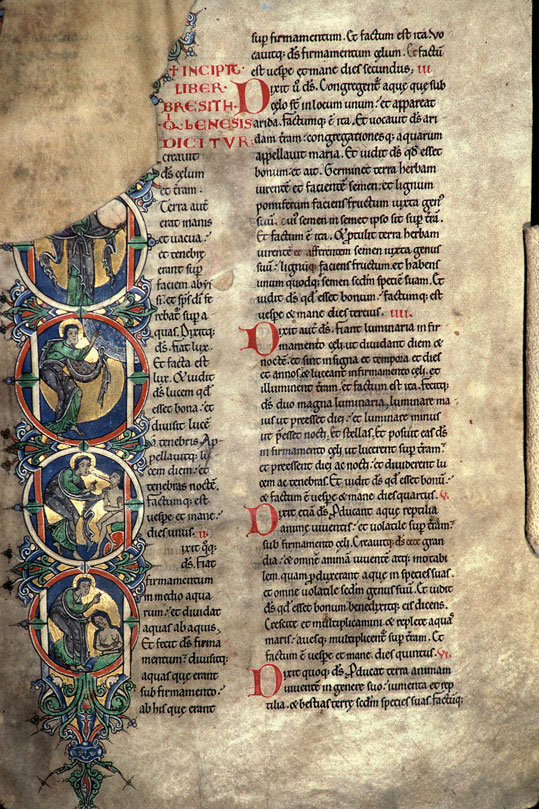 † INCIPIT·
LIBER·
BRESITH·
Q̇ GENESIS
DICITUR·
creavit
ds̄ celum
et tr̄am·
Terra aut̄
erat inanis
et vacua·
et tenebrȩ
erant sup̄
faciem abyſ
ſi· et sp̄s dī fe
rebat̄ ſup a
quas· Dixitq;
ds̄· fiat lux·
Et facta eſt
lux· Et vidit
ds̄ lucem qd̄
eſſet bona· et
diviſit lucē
a tenebris· Ap
pellavitq; lu
cem diem· et
tenebras noctē·
Factumq; eſt
veſpe et mane·
dies unus· ıı
ixit q̄q;
ds̄· Fiat
firmamentum
in medio aqua
rum· et dividat
aquas ab aquis·
Et fecit ds̄ firma
mentum· diviſitq;
aquas que erant
ſub firmamento·
ab his quȩ erant
ſup firmamentum· Et factum eſt ita· Vo
cavitq; ds̄ firmamentum cȩlum· Et factū
eſt veſpe et mane dies ſecundus· ııı
Dixit ū ds̄· Congregent̄ aquȩ quȩ ſub
cȩlo ſt̄ in locum unum· et appareat
arida· factumq; ē ita· Et vocavit ds̄ ari
dam tr̄am· congregationesq; aquarum
appellavit maria· Et vidit ds̄ qd̄ eſſet
bonum· et ait· Germinet terra herbam
virentē et facientē ſemen· et lignum
pomiferum faciens fructum iuxta gen̄
ſuū· cui̓ ſemen in ſemet ipſo ſit ſup tr̄ā·
Et factum ē ita· Et ꝓtulit terra herbam
virentē et afferentem ſemen iuxta genus
ſuū· lignūq; faciens fructum· et habens
unum quodq; ſemen ſcd̄m ſpeciem ſuam· Et
vidit ds̄ qd̄ eſſet bonum· factumq; eſt
veſpe & mane dies tercius· ıııı·
Dixit aut̄ ds̄· Fiant luminaria in fir
mamento cȩli· ut dividant diem &
noctē· et ſint in ſigna et tempora et dies
et annos· & luceant in firmamento cȩli· et
illuminent tr̄am· et factum eſt ita· fecitq;
ds̄ duo magna luminaria· luminare ma
ius ut preeſſet diei· et luminare minus
ut p̄eſſet nocti· et ſtellas· Et poſuit eas ds̄
in firmamento cȩli ut lucerent ſup tr̄am·
et preeſſent diei ac nocti· et dividerent lu
cem ac tenebras· Et vidit ds̄ qd̄ eſſet bonū·
& factum ē veſpe & mane dies quartus· v·
Dixit etiā ds̄· Ꝓducant aquȩ reptilia
animȩ viventis· et volatile ſup tr̄am·
ſub firmamento cȩli· Creavitq; ds̄ cete gran
dia· & omnē animā viventē atq; motabi
lem· quam ꝓduxerant aquȩ in ſpecies ſuas·
et omne volatile ſcd̄m genus ſuū· Et vidit
ds̄ qd̄ eſſet bonum· benedixitq; eis dicens·
Creſcite et multiplicamini· & replete aquas̄
maris· aveſq; multiplicent̄ ſup tr̄am· Et
factum ē veſpe et mane· dies quintus· vı·
Dixit quoq; ds̄· Ꝓducat terra animam
viventē in genere ſuo· iumenta et rep
tilia· & beſtias terrȩ ſcd̄m ſpecies ſuas· factūq;